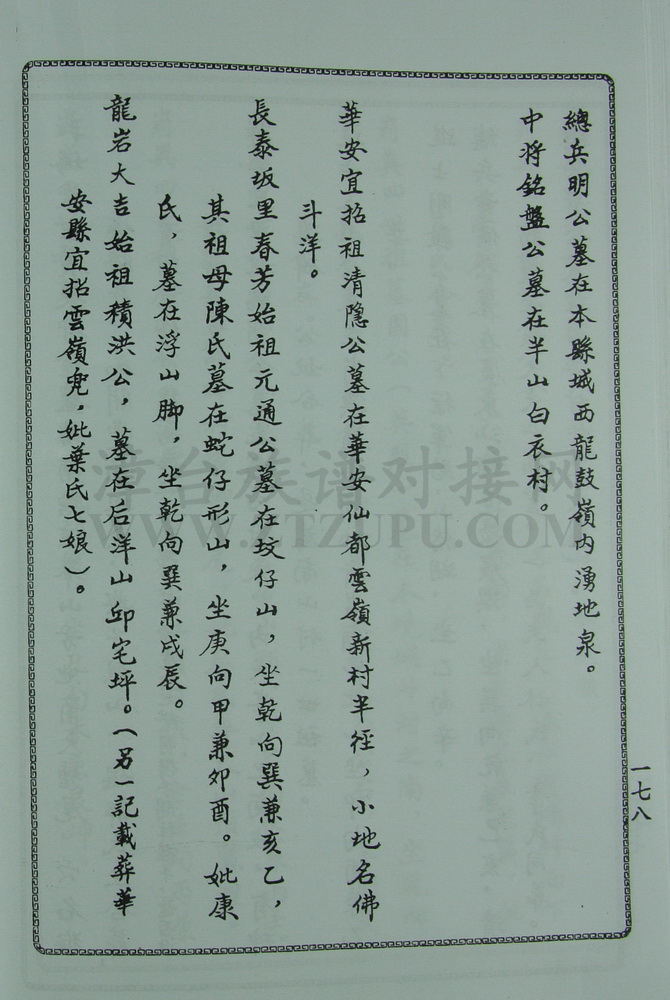 總兵明公墓在本縣城西龍鼓嶺内湧地泉。
中将銘盤公墓在半山白衣村。
華安宜招祖清隐公墓在華安仙都雲嶺新村半徑，小地名佛
斗洋。
長泰坂里春芳始祖元通公墓在坟仔山，坐乾向巽兼亥乙，
其祖母陳氏墓在蛇仔形山，坐庚向甲兼卯酉。妣康
氏，墓在浮山脚，坐乾向巽兼戌辰。
龍岩大吉始祖積洪公，墓在后洋山邱宅坪。（另一記載葬華
安縣宜招雲嶺兜，妣葉氏七娘）。
一七八
漳台族谱对接网
WWW.ZTZUPU.COM